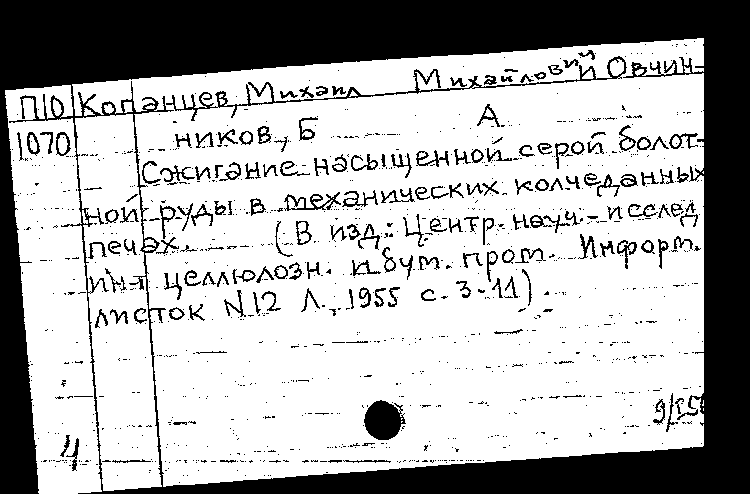 П10 Копанцев, Михаил Михайлович Овчин-
1070 ников, Б А
Сжигание насыщенной серой болот-
ной руды в механических колчеданных
печах. (В изд.: Центр. науч.-исслед
ин-т целлюлозн. и бум. пром. Информ.
листок N12 Л., 1955 с. 3-11).
4